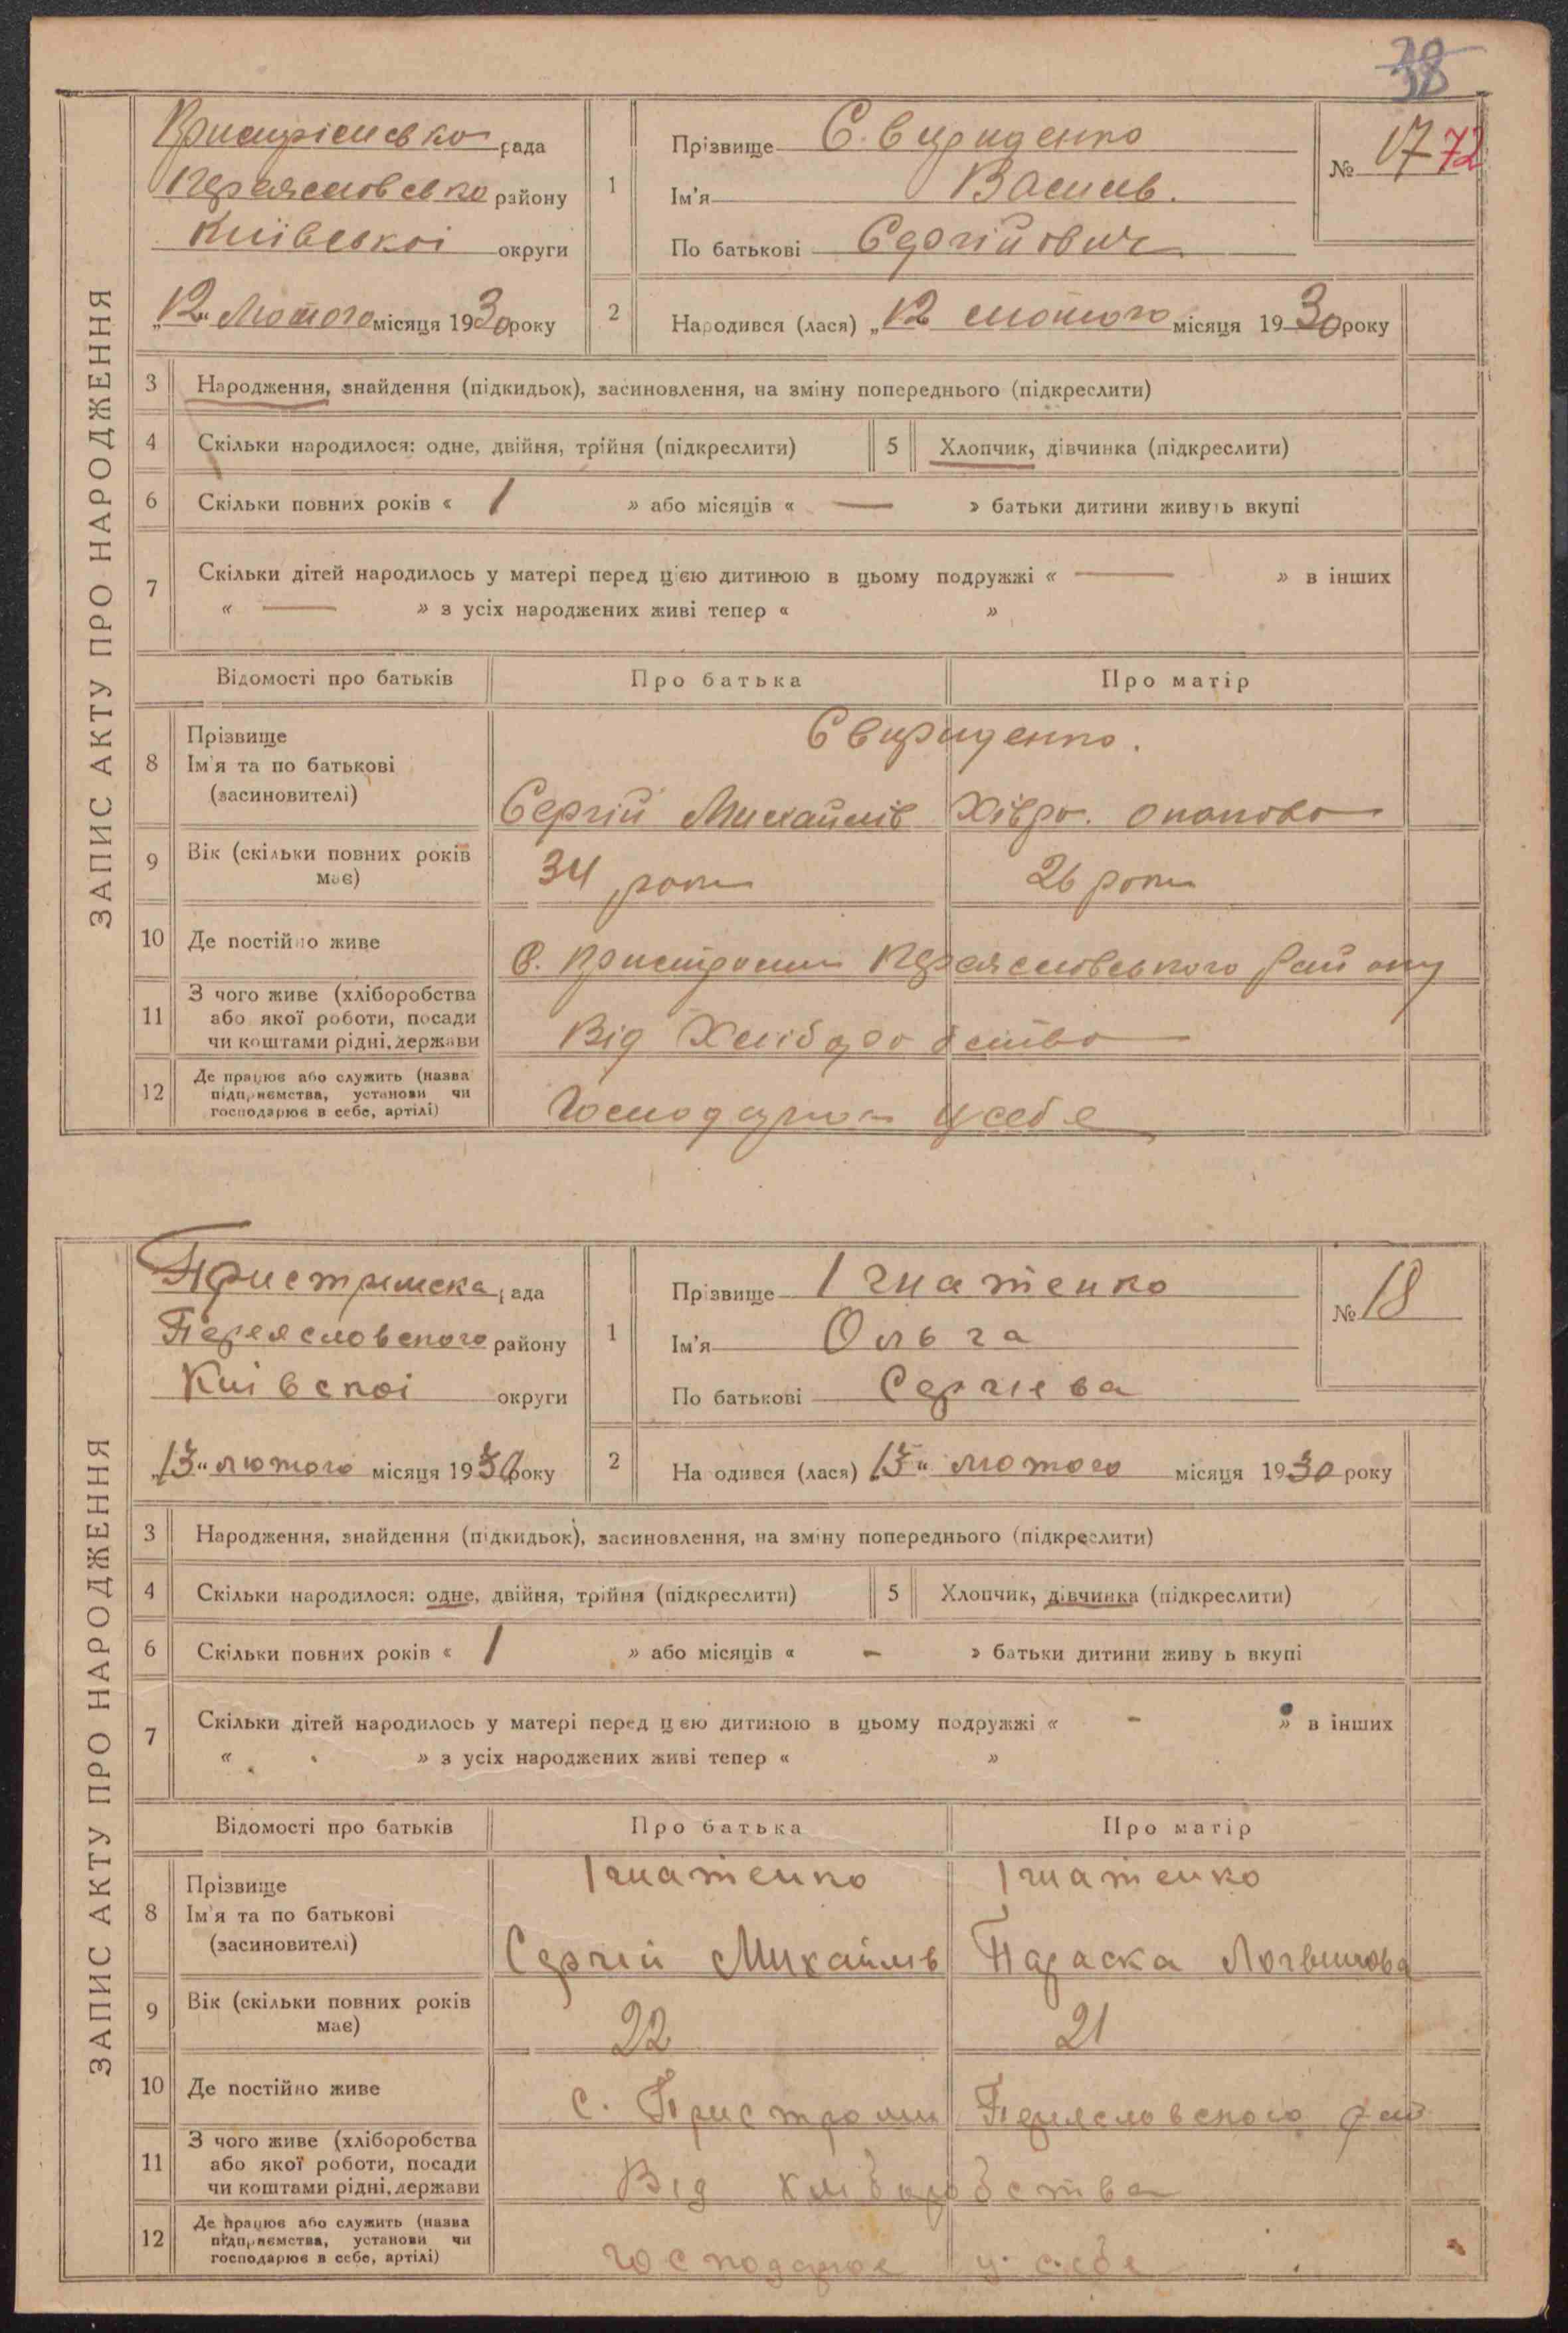 38
ЗАПИС АКТУ ПРО НАРОДЖЕННЯ
Пристрімсько рада
Переясловсько району
Київської округи
„12" Лютого місяця 1930 року
1
Прізвище Свириденко
Ім'я Василь.
По батькові Сергійович
№ 17 72
2
Народився (лася) „12 лютого місяця 1930 року
3 Народження, знайдення (підкидьок), засиновлення, на зміну попереднього (підкреслити)
4 Скільки народилося: одне, двійня, трійня (підкреслити) 5 Хлопчик, дівчинка (підкреслити)
6 Скільки повних років « 1 » або місяців « — » батьки дитини живуть вкупі
7 Скільки дітей народилось у матері перед цією дитиною в цьому подружжі « — » в інших
« — » з усіх народжених живі тепер « »
Відомості про батьків Про батька Про матір
8 Прізвище
Ім'я та по батькові
(засиновителі)
Свириденко.
Сергій Михайлів Хівро. Опанова
9 Вік (скільки повних років
має)
34 роки 26 роки
10 Де постійно живе
С. Пристроми Переясловського району
11 З чого живе (хліборобства
або якої роботи, посади
чи коштами рідні, держави
Від Хліборобства
12 Де працює або служить (назва
підприємства, установи чи
господарює в себе, артілі)
у себе
ЗАПИС АКТУ ПРО НАРОДЖЕННЯ
Пристримска рада
Переясловского району
Київскої округи
„13" лютого місяця 1930 року
1
Прізвище Ігнатенко
Ім'я Ольга
По батькові Сергієва
№ 18
2
Народився (лася) 13" лютого місяця 1930 року
3 Народження, знайдення (підкидьок), засиновлення, на зміну попереднього (підкреслити)
4 Скільки народилося: одне, двійня, трійня (підкреслити) 5 Хлопчик, дівчинка (підкреслити)
6 Скільки повних років « 1 » або місяців « - » батьки дитини живуть вкупі
7 Скільки дітей народилось у матері перед цією дитиною в цьому подружжі « - » в інших
« » з усіх народжених живі тепер « »
Відомості про батьків Про батька Про матір
8 Прізвище
Ім'я та по батькові
(засиновителі)
Ігнатенко Ігнатенко
Сергій Михайлів Параска Логвинова
9 Вік (скільки повних років
має)
22 21
10 Де постійно живе
с. Пристроми Переясловского рай
11 З чого живе (хліборобства
або якої роботи, посади
чи коштами рідні, держави
Від хліборобства
12 Де працює або служить (назва
підприємства, установи чи
господарює в себе, артілі)
господарює у себе